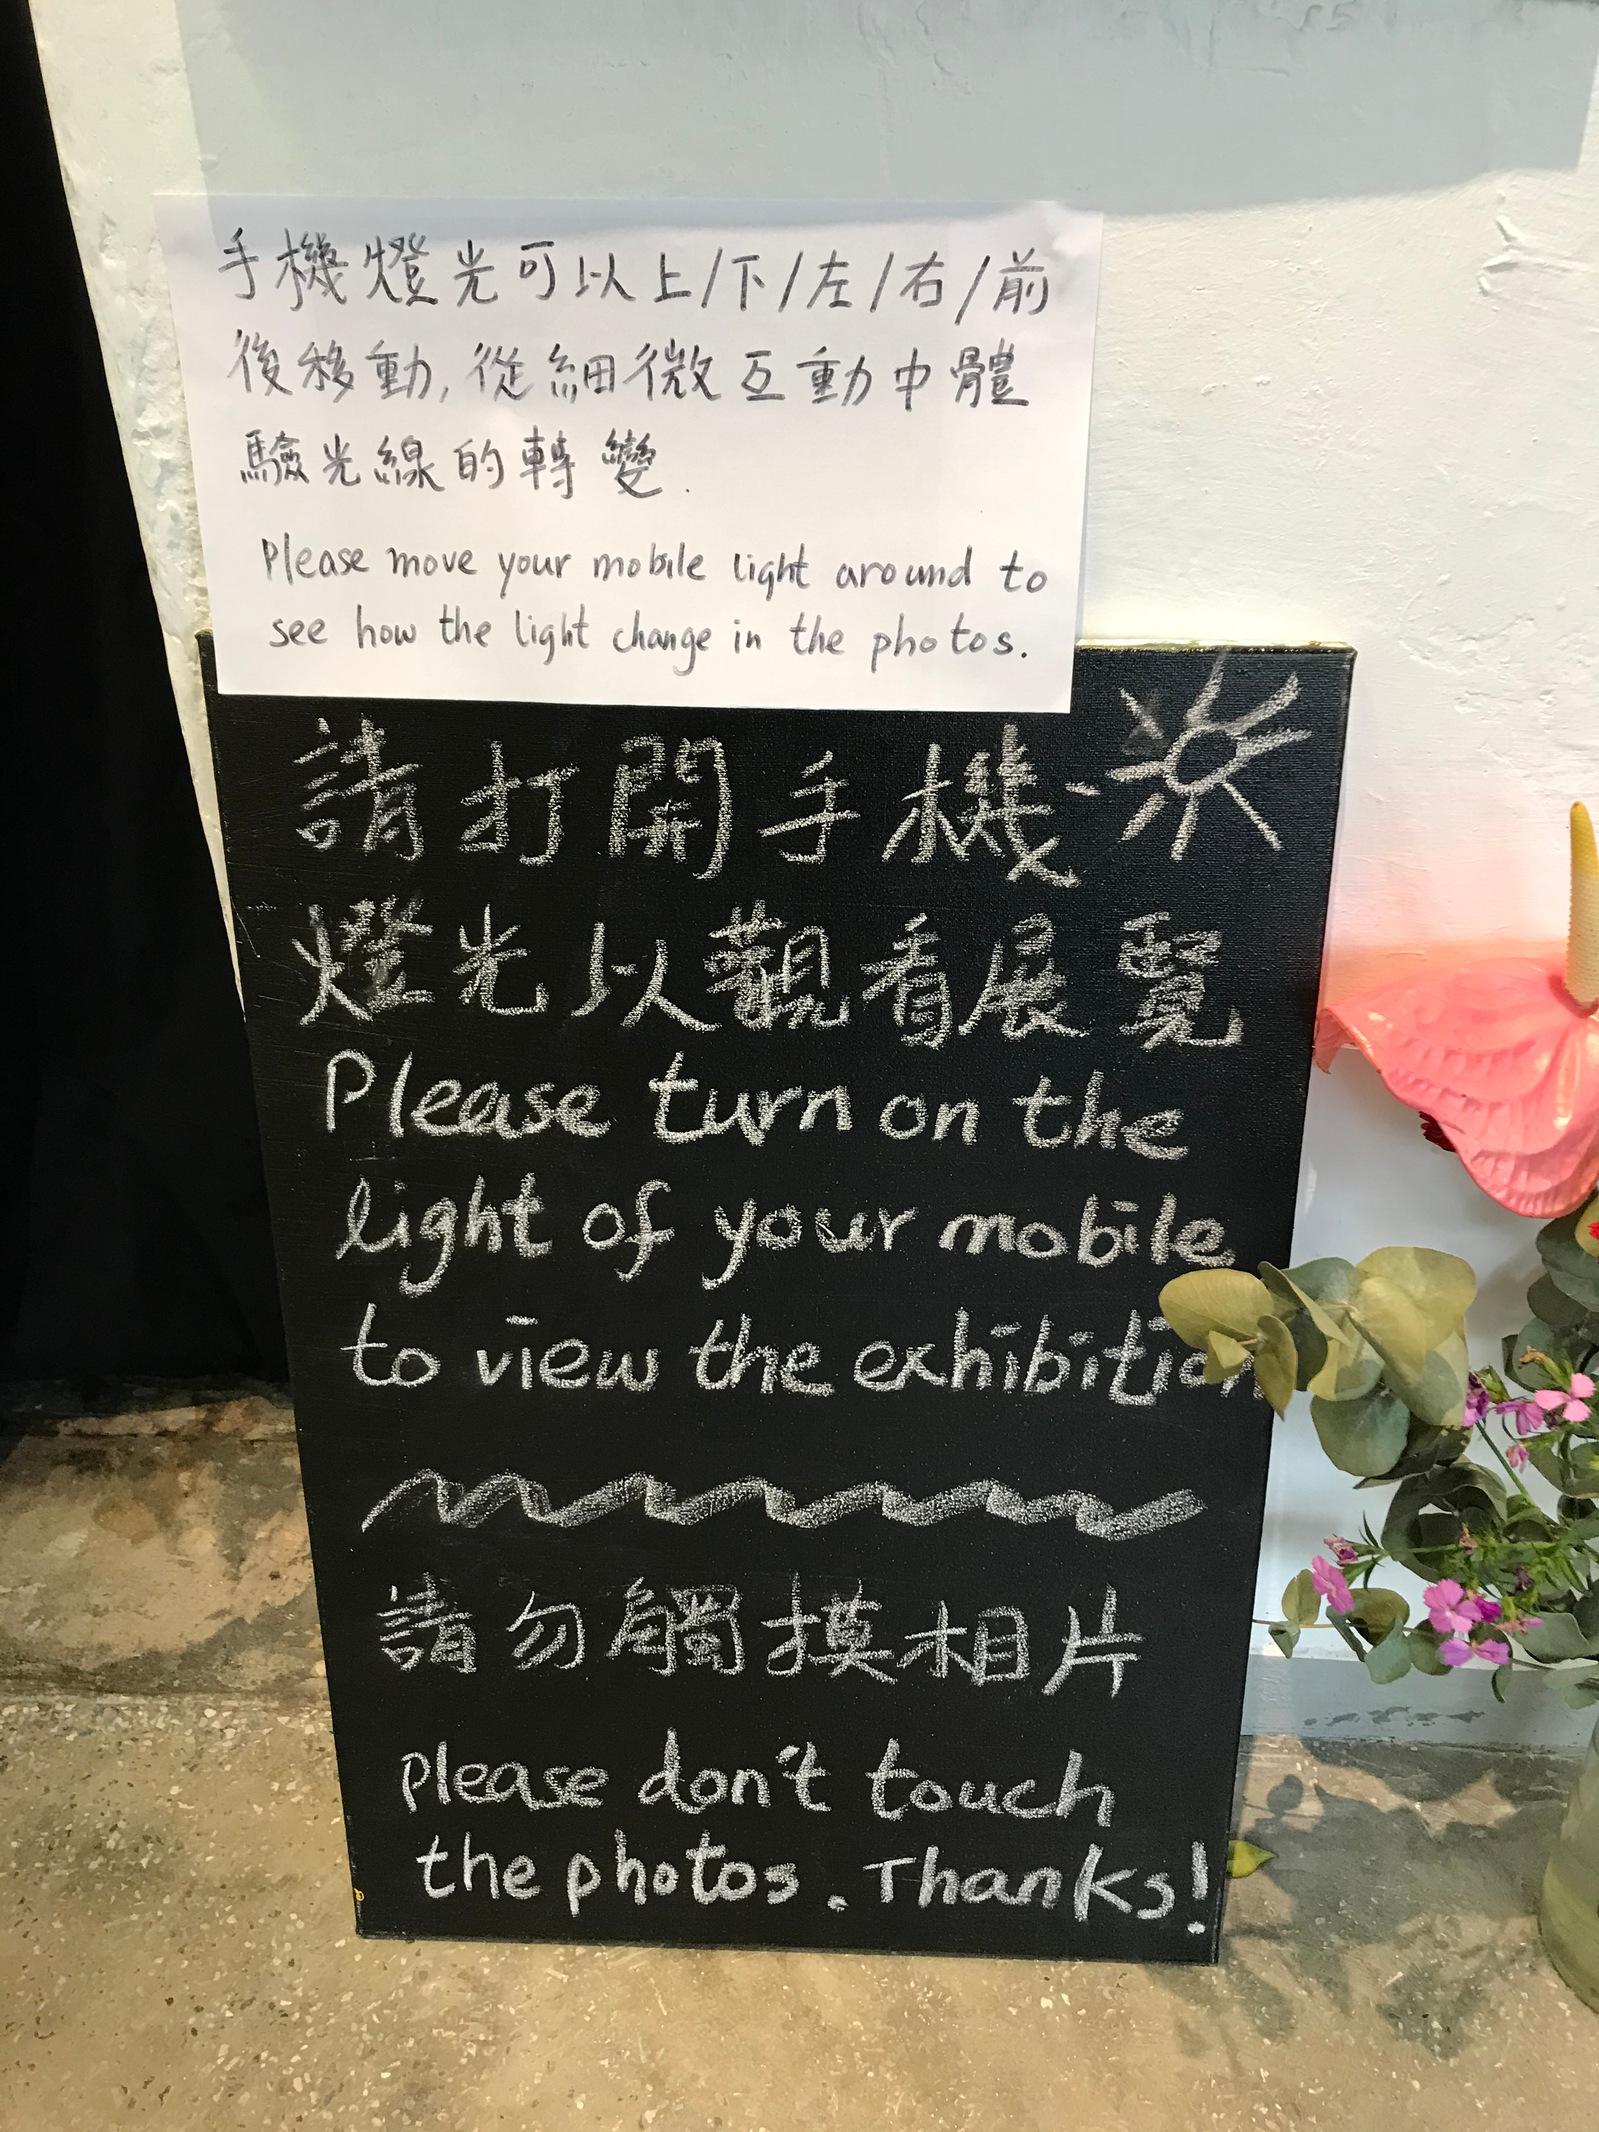 手機燈光可以上/下/左/右/前
後移動,從細微互動中體
驗光線的轉變.
Please move your mobile light around to
see how the light change in the photos.
請打開手機
燈光以觀看展覽
Please turn on the
light of your mobile
to view the exhibition
請勿觸摸相片
Please don't touch
the photos. Thanks!